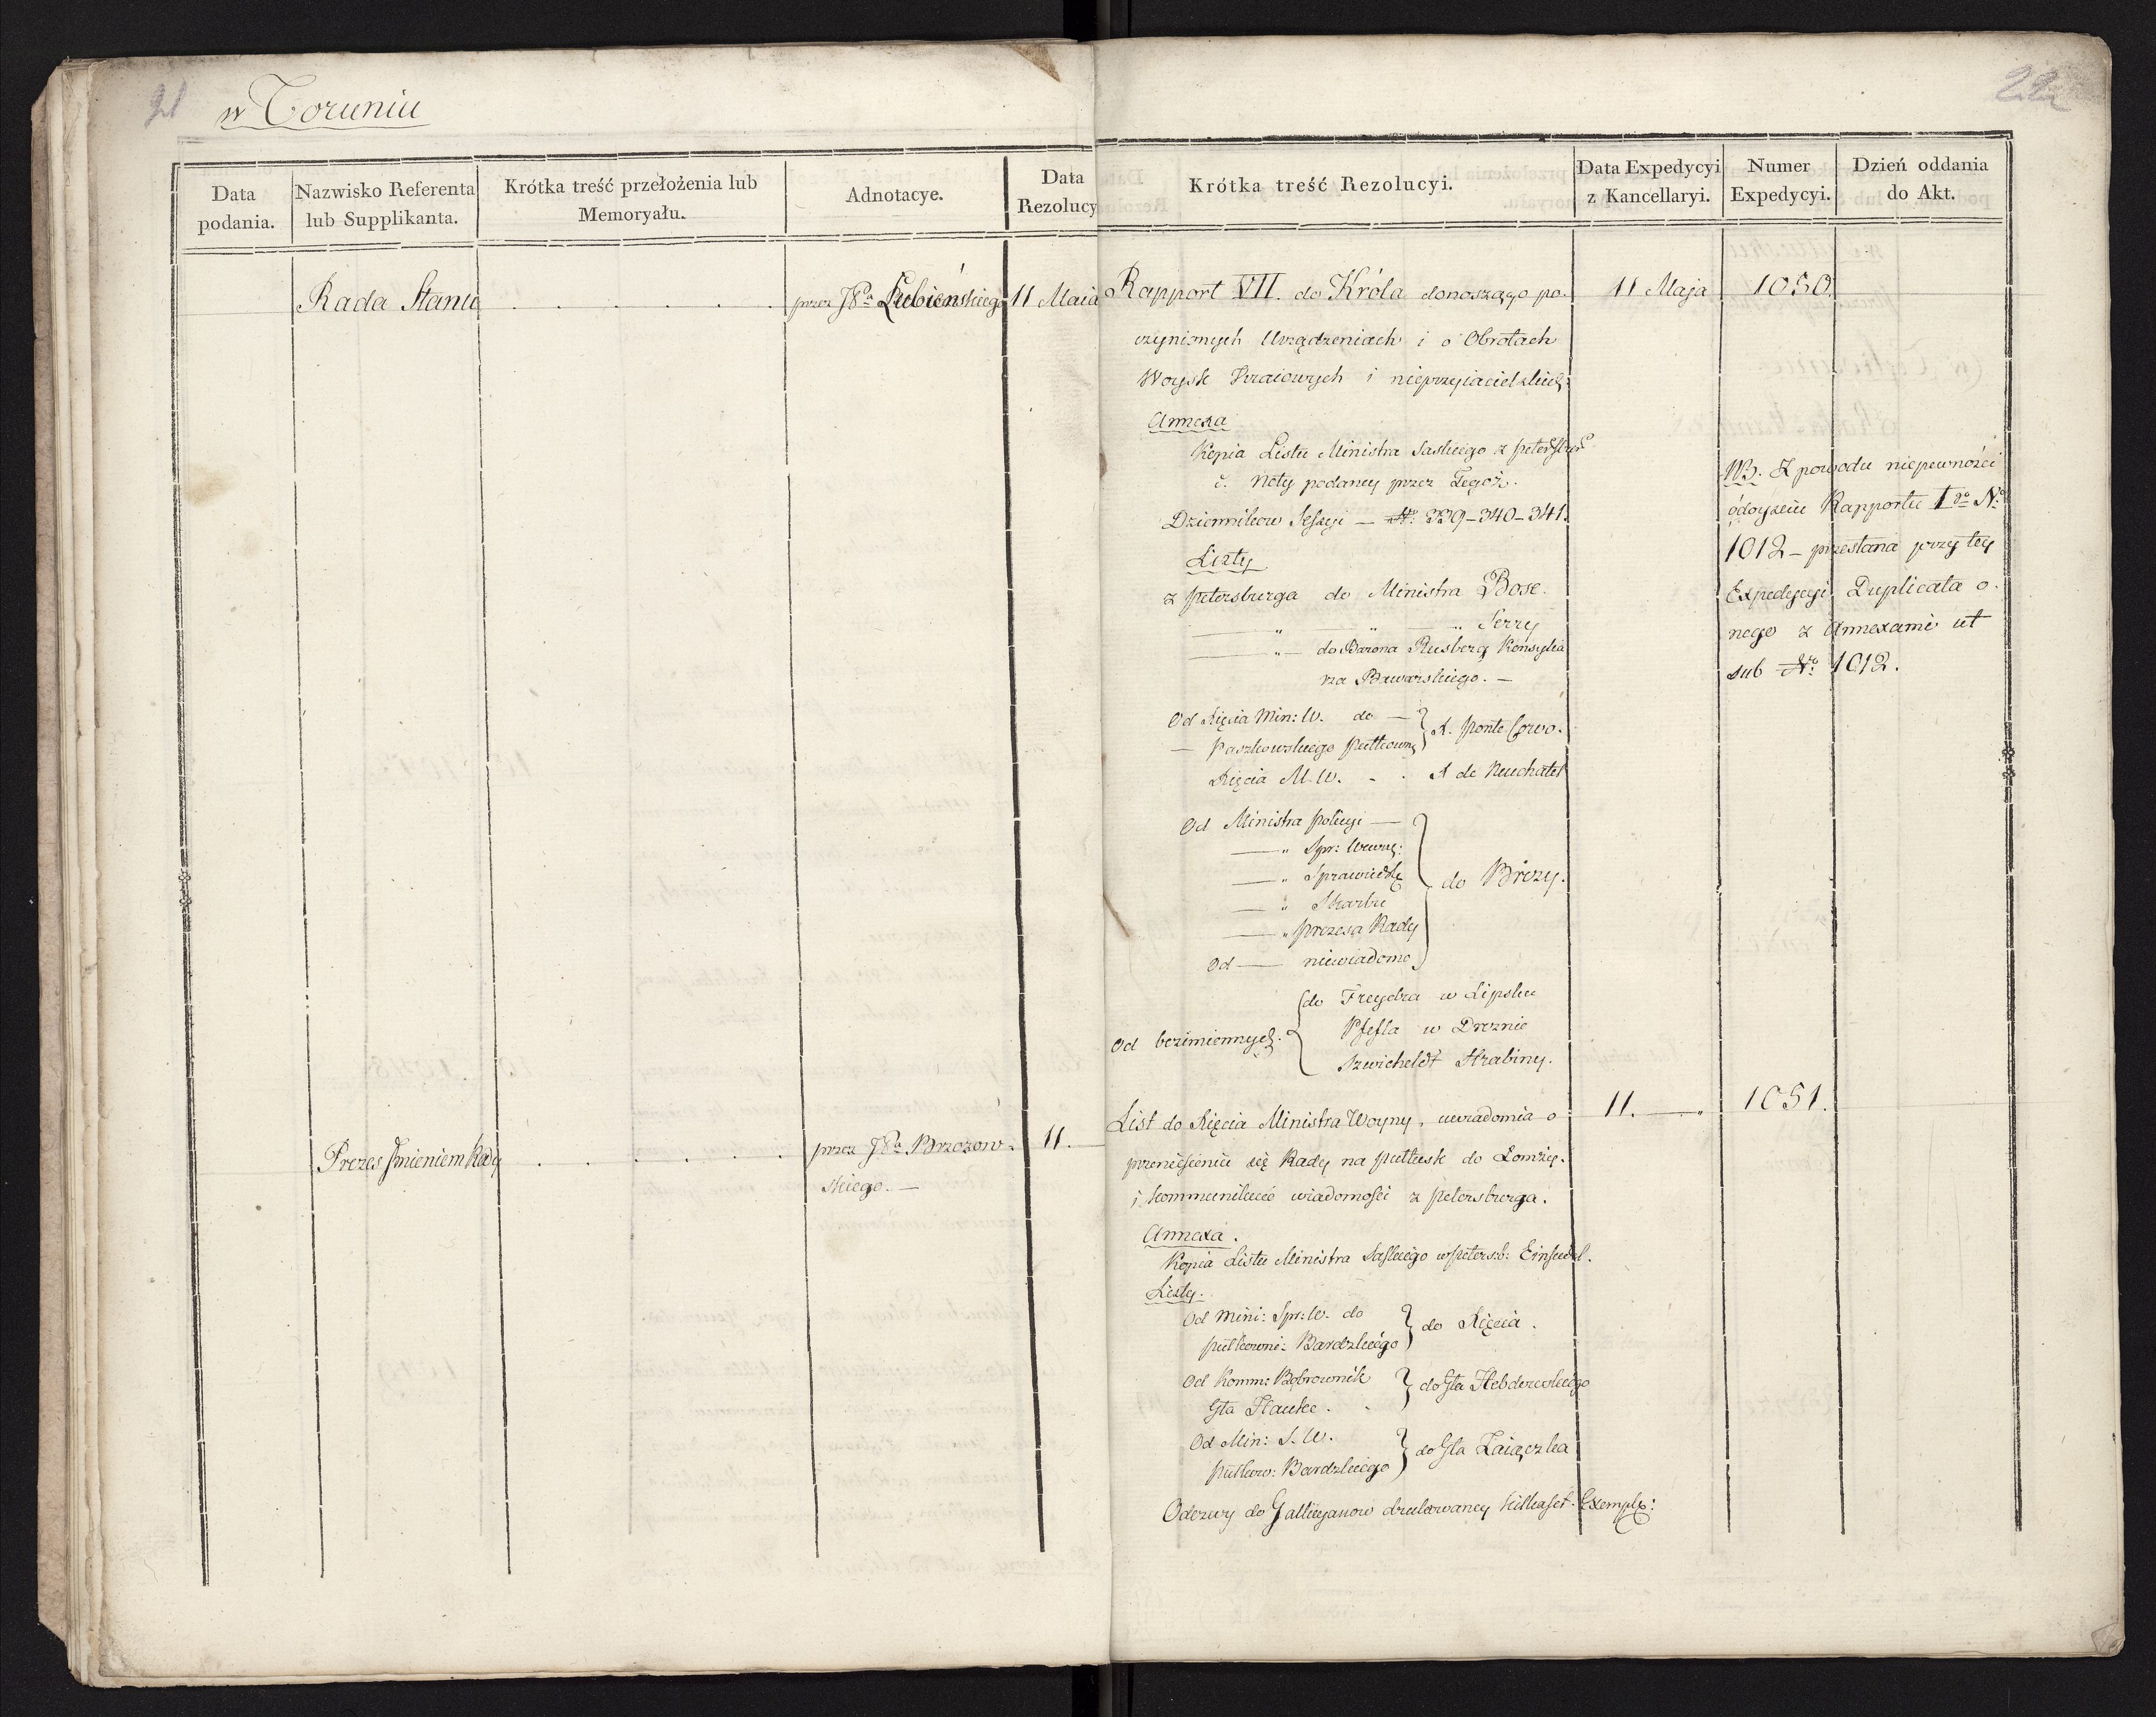 21
w Toruniu
22
Data podania.
Nazwisko Referenta lub Supplikanta.
Krótka treść przełożenia lub Memoryału.
Adnotacye.
Data Rezolucy
Krótka treść Rezolucyi.
Data Expedycyi z Kancellaryi.
Numer Expedycyi.
Dzień oddania do Akt.
Rada Stanu
przez JPa Łubieńskiego
11 Maia
Rapport VII. do Króla donoszącgo po-
czynionych Urządzeniach i o Obrotach
Woysk Kraiowych i nieprzyiacielskich.
Annexa
Kopia Listu Ministra Saskiego z Petersburg
d. Noty podaney przez Tegoż.
Dzienników Sessyi — No: 339-340-341.
Listy
z Petersburga do Ministra Bose.
— " — " — " Serry
— " — do Barona Rusberg Konsylia
rza Bawarskiego. —
Od Xięcia Min: W. do —
— Paszkowskiego Pułkown
X. Ponte Corvo.
Xięcia M. W. - . X de Neuchatel
Od Ministra Policyi —
— " Spr: Wewnę:
— " Sprawiedl
— " Skarbu
— " Prezesa Rady
Od — niewiadomo
do Brezy.
Od bezimiennych.
do Freydra w Lipsku
Pfefla w Dreznie
Szwicheldt Hrabiny.
11 Maja
1050.
NB. Z powodu niepewności
odoyściu Rapportu Igo No
1012 — przesłana przy tey
Expedycyi Duplicata o-
nego z Annexami ut
sub No: 1012.
Prezes Imieniem Rady
przez JPa Brzozow-
skiego. —
11. —
List do Xięcia Ministra Woyny, uwiadomia o
przeniesieniu się Rady na Pułtusk do Łomży.
i kommunikuie wiadomości z Petersburga.
Annexa.
Kopia Listu Ministra Saskiego w Petersb: Einsiedel.
Listy.
Od Mini: Spr: W. do
Pułkowni: Bardzkiego
do Xięcia.
Od Komm: Bobrownik
Gła Hauke . .
do Gła Hebdowskiego
Od Min: S. W.
Pułkow: Bardzkiego
do Gła Zaiączka
Odezwy do Gallicyanow drukowaney kilkaset. Exempl:
11. — "
1051.